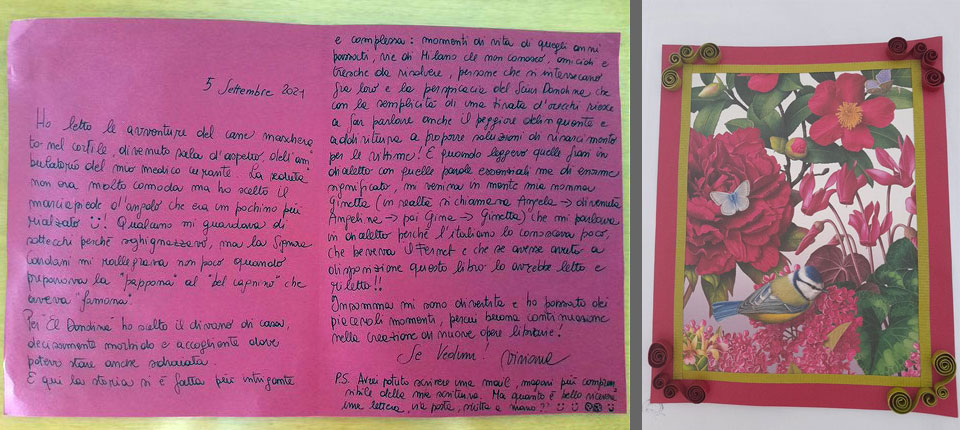 5 Settembre 2021
Ho letto le avventure del cane maschera
to nel cortile, divenuto sala d'aspetto, dell'am
bulatorio del mio medico curante. La seduta
non era molto comoda ma ho scelto il
marciapiede d'angolo che era un pochino più
rialzato ! Qualcuno mi guardava di
sottecchi perché sghignazzavo, ma la Signora
Candani mi rallegrava non poco quando
preparava la "pappona" al "del capnino" che
aveva "famona".
Per "El Dondina" ho scelto il divano di casa,
decisamente morbido e accogliente dove
potevo stare anche sdraiata.
E qui la storia si è fatta più intrigante
e complessa: momenti di vita di quegli anni
passati, vie di Milano che non conosco, omicidi e
tresche da risolvere, persone che si intersecano
fra loro e la perspicacia del Sciur Dondina che
con la semplicità di una tirata d'orecchi riesce
a far parlare anche il peggiore delinquente e
addirittura a proporre soluzioni di risarcimento
per le vittime! E quando leggevo quelle frasi in
dialetto con quelle parole essenziali ma di enorme
significato, mi veniva in mente mia nonna
Ginetta (in realtà si chiamava Angela → divenuta
Angelina → poi Gina → Ginetta) che mi parlava
in dialetto perché l'italiano lo conosceva poco,
che beveva il Fernet e che se avesse avuto a
disposizione questo libro lo avrebbe letto e
riletto!!
Insomma mi sono divertita e ho passato dei
piacevoli momenti, perciò buona continuazione
nella creazione di nuove opere librarie!
Se Vedum! Viviana
P.S. Avrei potuto scrivere una mail, magari più compren
sibile della mia scrittura. Ma quanto è bello ricevere
una lettera, via posta, scritta a mano??